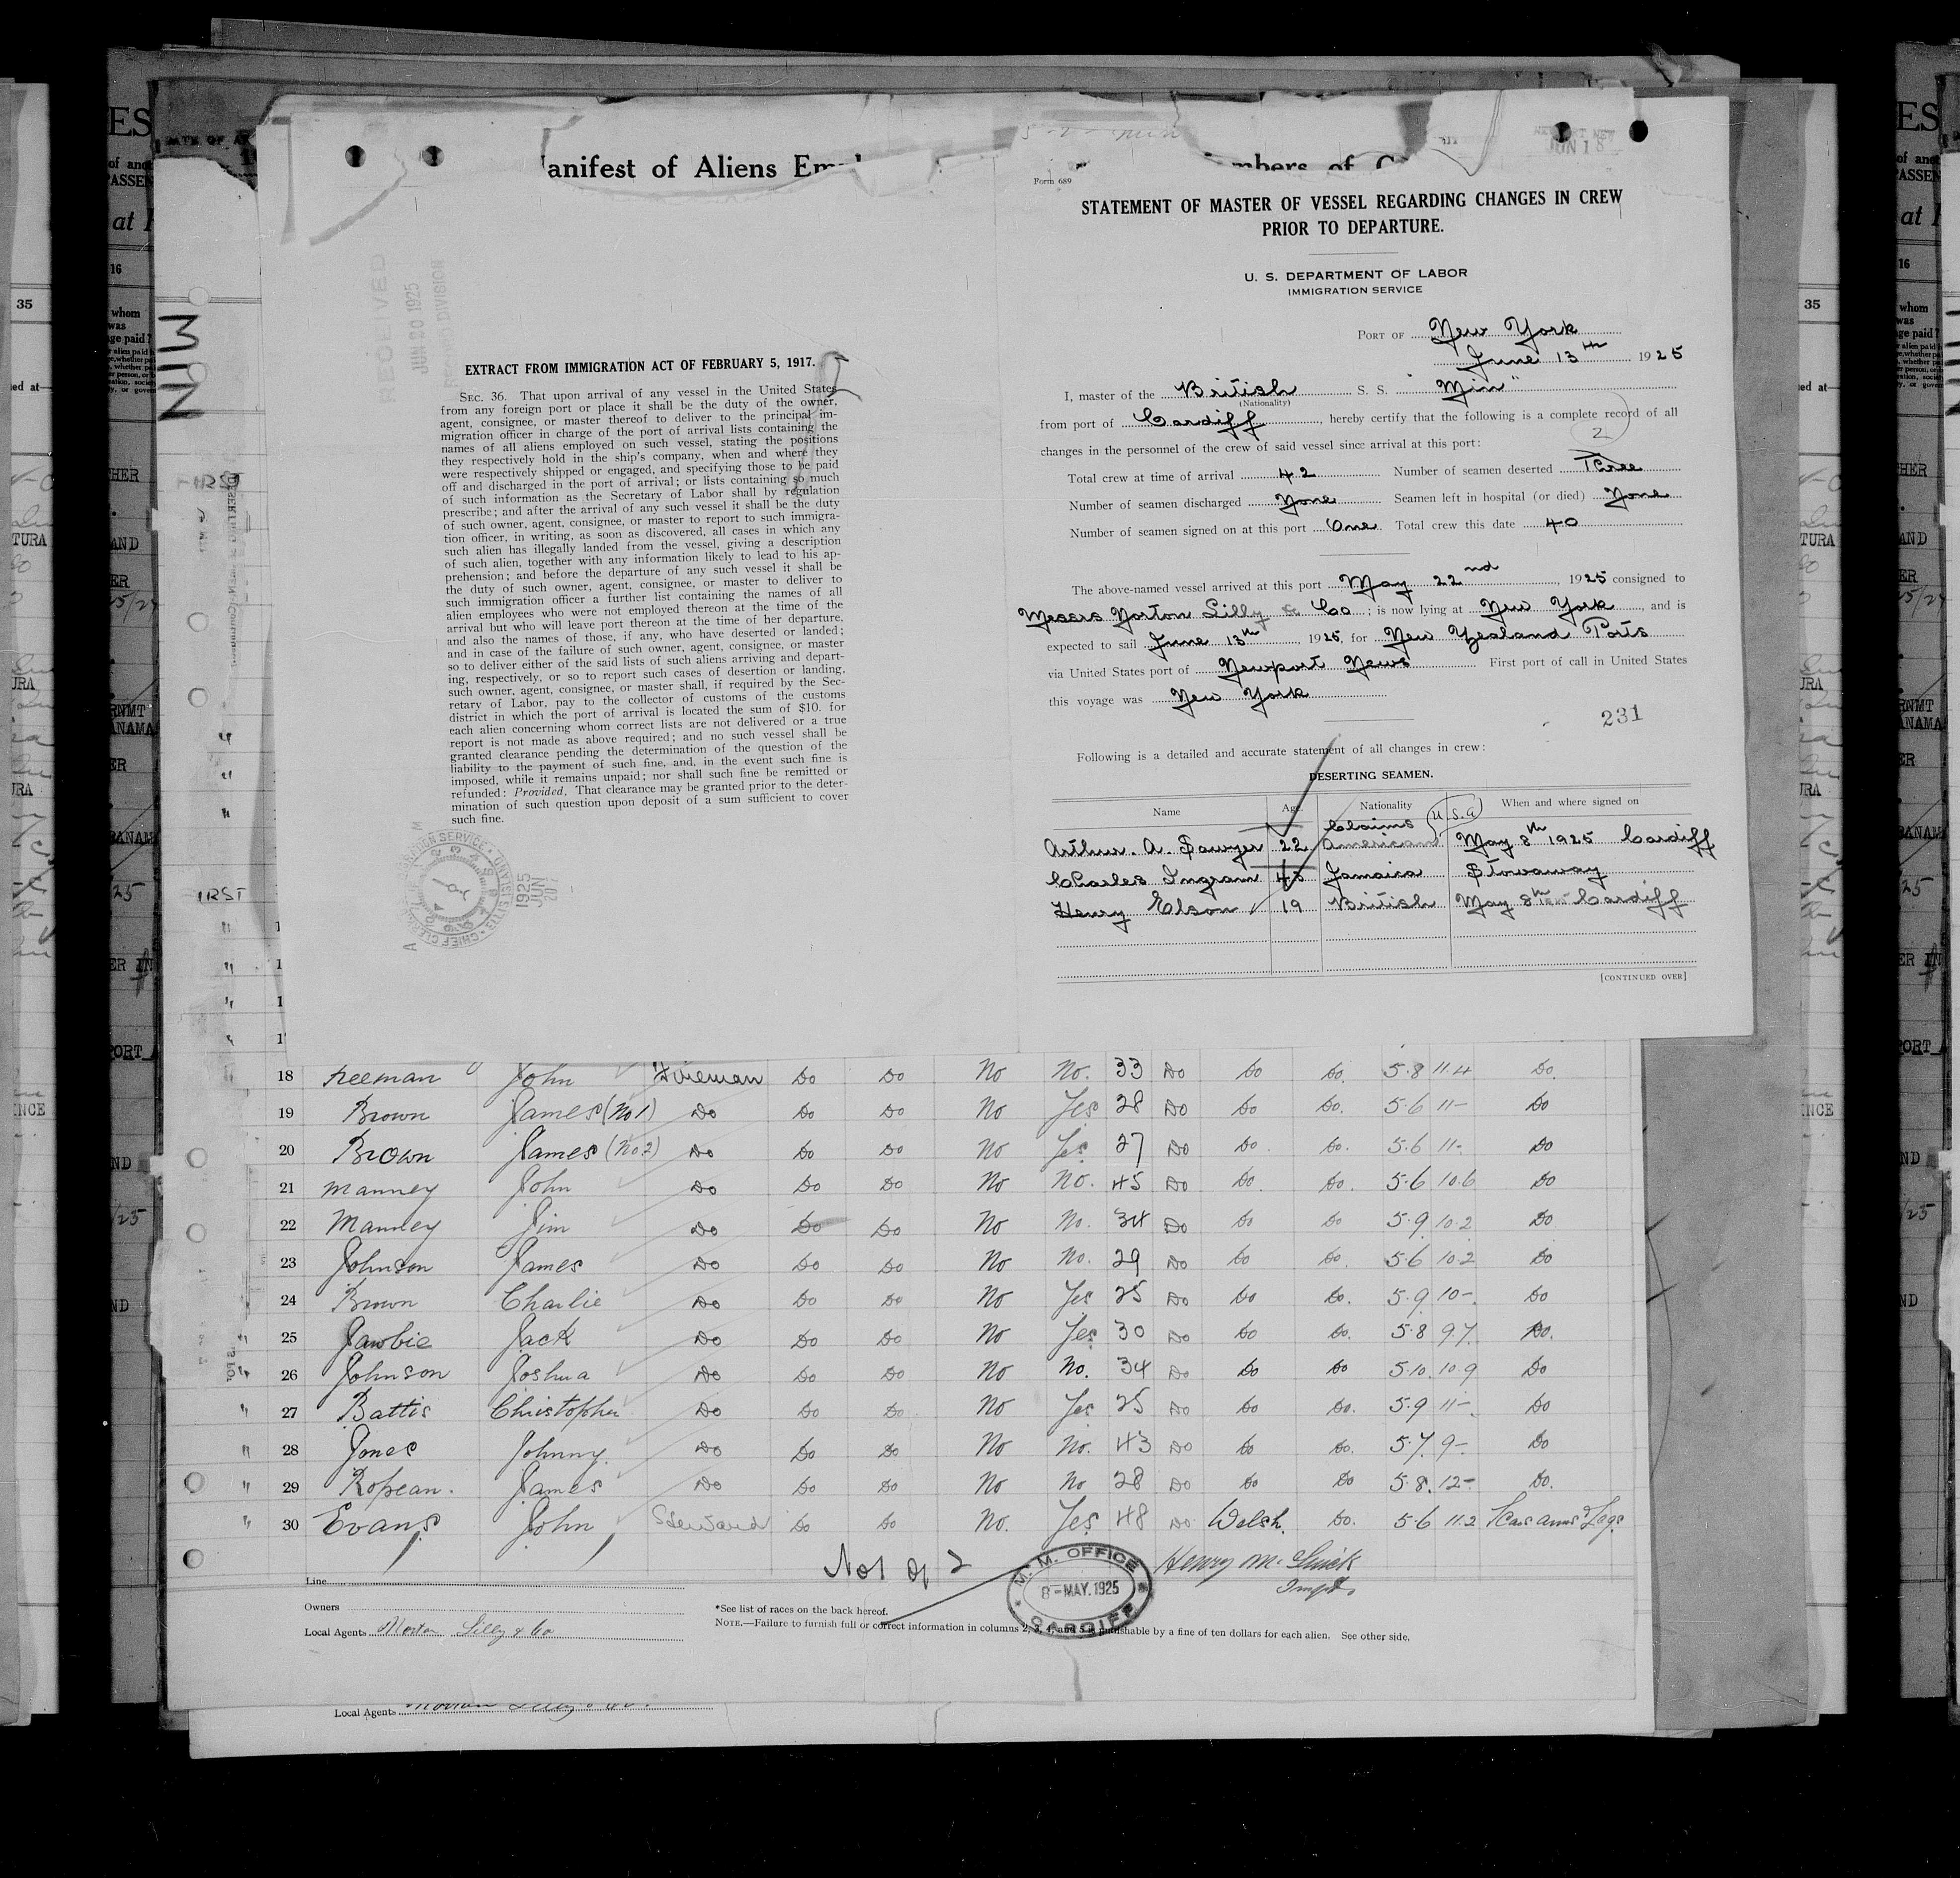 Manifest of Aliens Emp
mbers of C
JUN 18
Form 689
STATEMENT OF MASTER OF VESSEL REGARDING CHANGES IN CREW
PRIOR TO DEPARTURE.
U. S. DEPARTMENT OF LABOR
IMMIGRATION SERVICE
PORT OF New York
June 13th 1925
I, master of the British S. S. "Min"
(Nationality)
from port of Cardiff, hereby certify that the following is a complete record of all
changes in the personnel of the crew of said vessel since arrival at this port:
2
Total crew at time of arrival 42 Number of seamen deserted Three
Number of seamen discharged None Seamen left in hospital (or died) None
Number of seamen signed on at this port One Total crew this date 40
The above-named vessel arrived at this port May 22nd, 1925 consigned to
Messrs Norton Lilly & Co; is now lying at New York, and is
expected to sail June 13th, 1925, for New Zealand Ports
via United States port of Newport News First port of call in United States
this voyage was New York
231
Following is a detailed and accurate statement of all changes in crew:
DESERTING SEAMEN.
Name Age. Nationality When and where signed on
Claims U.S.A
Arthur. A. Sawyer 22 American May 8th 1925 Cardiff
Charles Ingram 45 Jamaica Stowaway
Henry Elson 19 British May 8th 1925 Cardiff
[CONTINUED OVER]
RECEIVED
JUN 20 1925
RECORD DIVISION
EXTRACT FROM IMMIGRATION ACT OF FEBRUARY 5, 1917.
SEC. 36. That upon arrival of any vessel in the United States
from any foreign port or place it shall be the duty of the owner,
agent, consignee, or master thereof to deliver to the principal im-
migration officer in charge of the port of arrival lists containing the
names of all aliens employed on such vessel, stating the positions
they respectively hold in the ship's company, when and where they
were respectively shipped or engaged, and specifying those to be paid
off and discharged in the port of arrival; or lists containing so much
of such information as the Secretary of Labor shall by regulation
prescribe; and after the arrival of any such vessel it shall be the duty
of such owner, agent, consignee, or master to report to such immigra-
tion officer, in writing, as soon as discovered, all cases in which any
such alien has illegally landed from the vessel, giving a description
of such alien, together with any information likely to lead to his ap-
prehension; and before the departure of any such vessel it shall be
the duty of such owner, agent, consignee, or master to deliver to
such immigration officer a further list containing the names of all
alien employees who were not employed thereon at the time of the
arrival but who will leave port thereon at the time of her departure,
and also the names of those, if any, who have deserted or landed;
and in case of the failure of such owner, agent, consignee, or master
so to deliver either of the said lists of such aliens arriving and depart-
ing, respectively, or so to report such cases of desertion or landing,
such owner, agent, consignee, or master shall, if required by the Sec-
retary of Labor, pay to the collector of customs of the customs
district in which the port of arrival is located the sum of $10. for
each alien concerning whom correct lists are not delivered or a true
report is not made as above required; and no such vessel shall be
granted clearance pending the determination of the question of the
liability to the payment of such fine, and, in the event such fine is
imposed, while it remains unpaid; nor shall such fine be remitted or
refunded: Provided, That clearance may be granted prior to the deter-
mination of such question upon deposit of a sum sufficient to cover
such fine.
1925
JUN
MIN
18 Freeman John Fireman Do Do No No. 33 Do Do Do. 5.8 11.4 Do.
19 Brown James (No 1) Do Do Do No Yes 28 Do Do Do. 5.6 11- Do
20 Brown James (No 2) Do Do Do No Yes 27 Do Do Do. 5.6 11- Do
21 Manney John Do Do Do No No. 45 Do Do Do. 5.6 10.6 Do
22 Manney Jim Do Do Do No No. 34 Do Do Do 5.9 10.2 Do
23 Johnson James Do Do Do No No. 29 Do Do Do. 5.6 10.2 Do
24 Brown Charlie Do Do Do No Yes 25 Do Do Do. 5.9 10- Do
25 Jawbie Jack Do Do Do No Yes 30 Do Do Do. 5.8 9.7. Do.
26 Johnson Joshua Do Do Do No No. 34 Do Do Do 5.10. 10.9 Do
27 Battis Christopher Do Do Do No Yes 25 Do Do Do. 5.9 11- Do
28 Jones Johnny. Do Do Do No No. 43 Do Do Do. 5.7. 9- Do
29 Ropean. James Do Do Do No No 28 Do Do Do 5.8. 12- Do.
30 Evans John Steward Do Do No. Yes 48 Do Welsh. Do. 5.6 11.2 Scars arms & Legs
No 1 of 2
M. M. OFFICE
8-MAY.1925
CARDIFF
Line
Owners
Local Agents Norton Lilly & Co
*See list of races on the back hereof.
NOTE.—Failure to furnish full or correct information in columns 2, 3, 4, and 5 is punishable by a fine of ten dollars for each alien. See other side.
Local Agents Norton Lilly & Co.